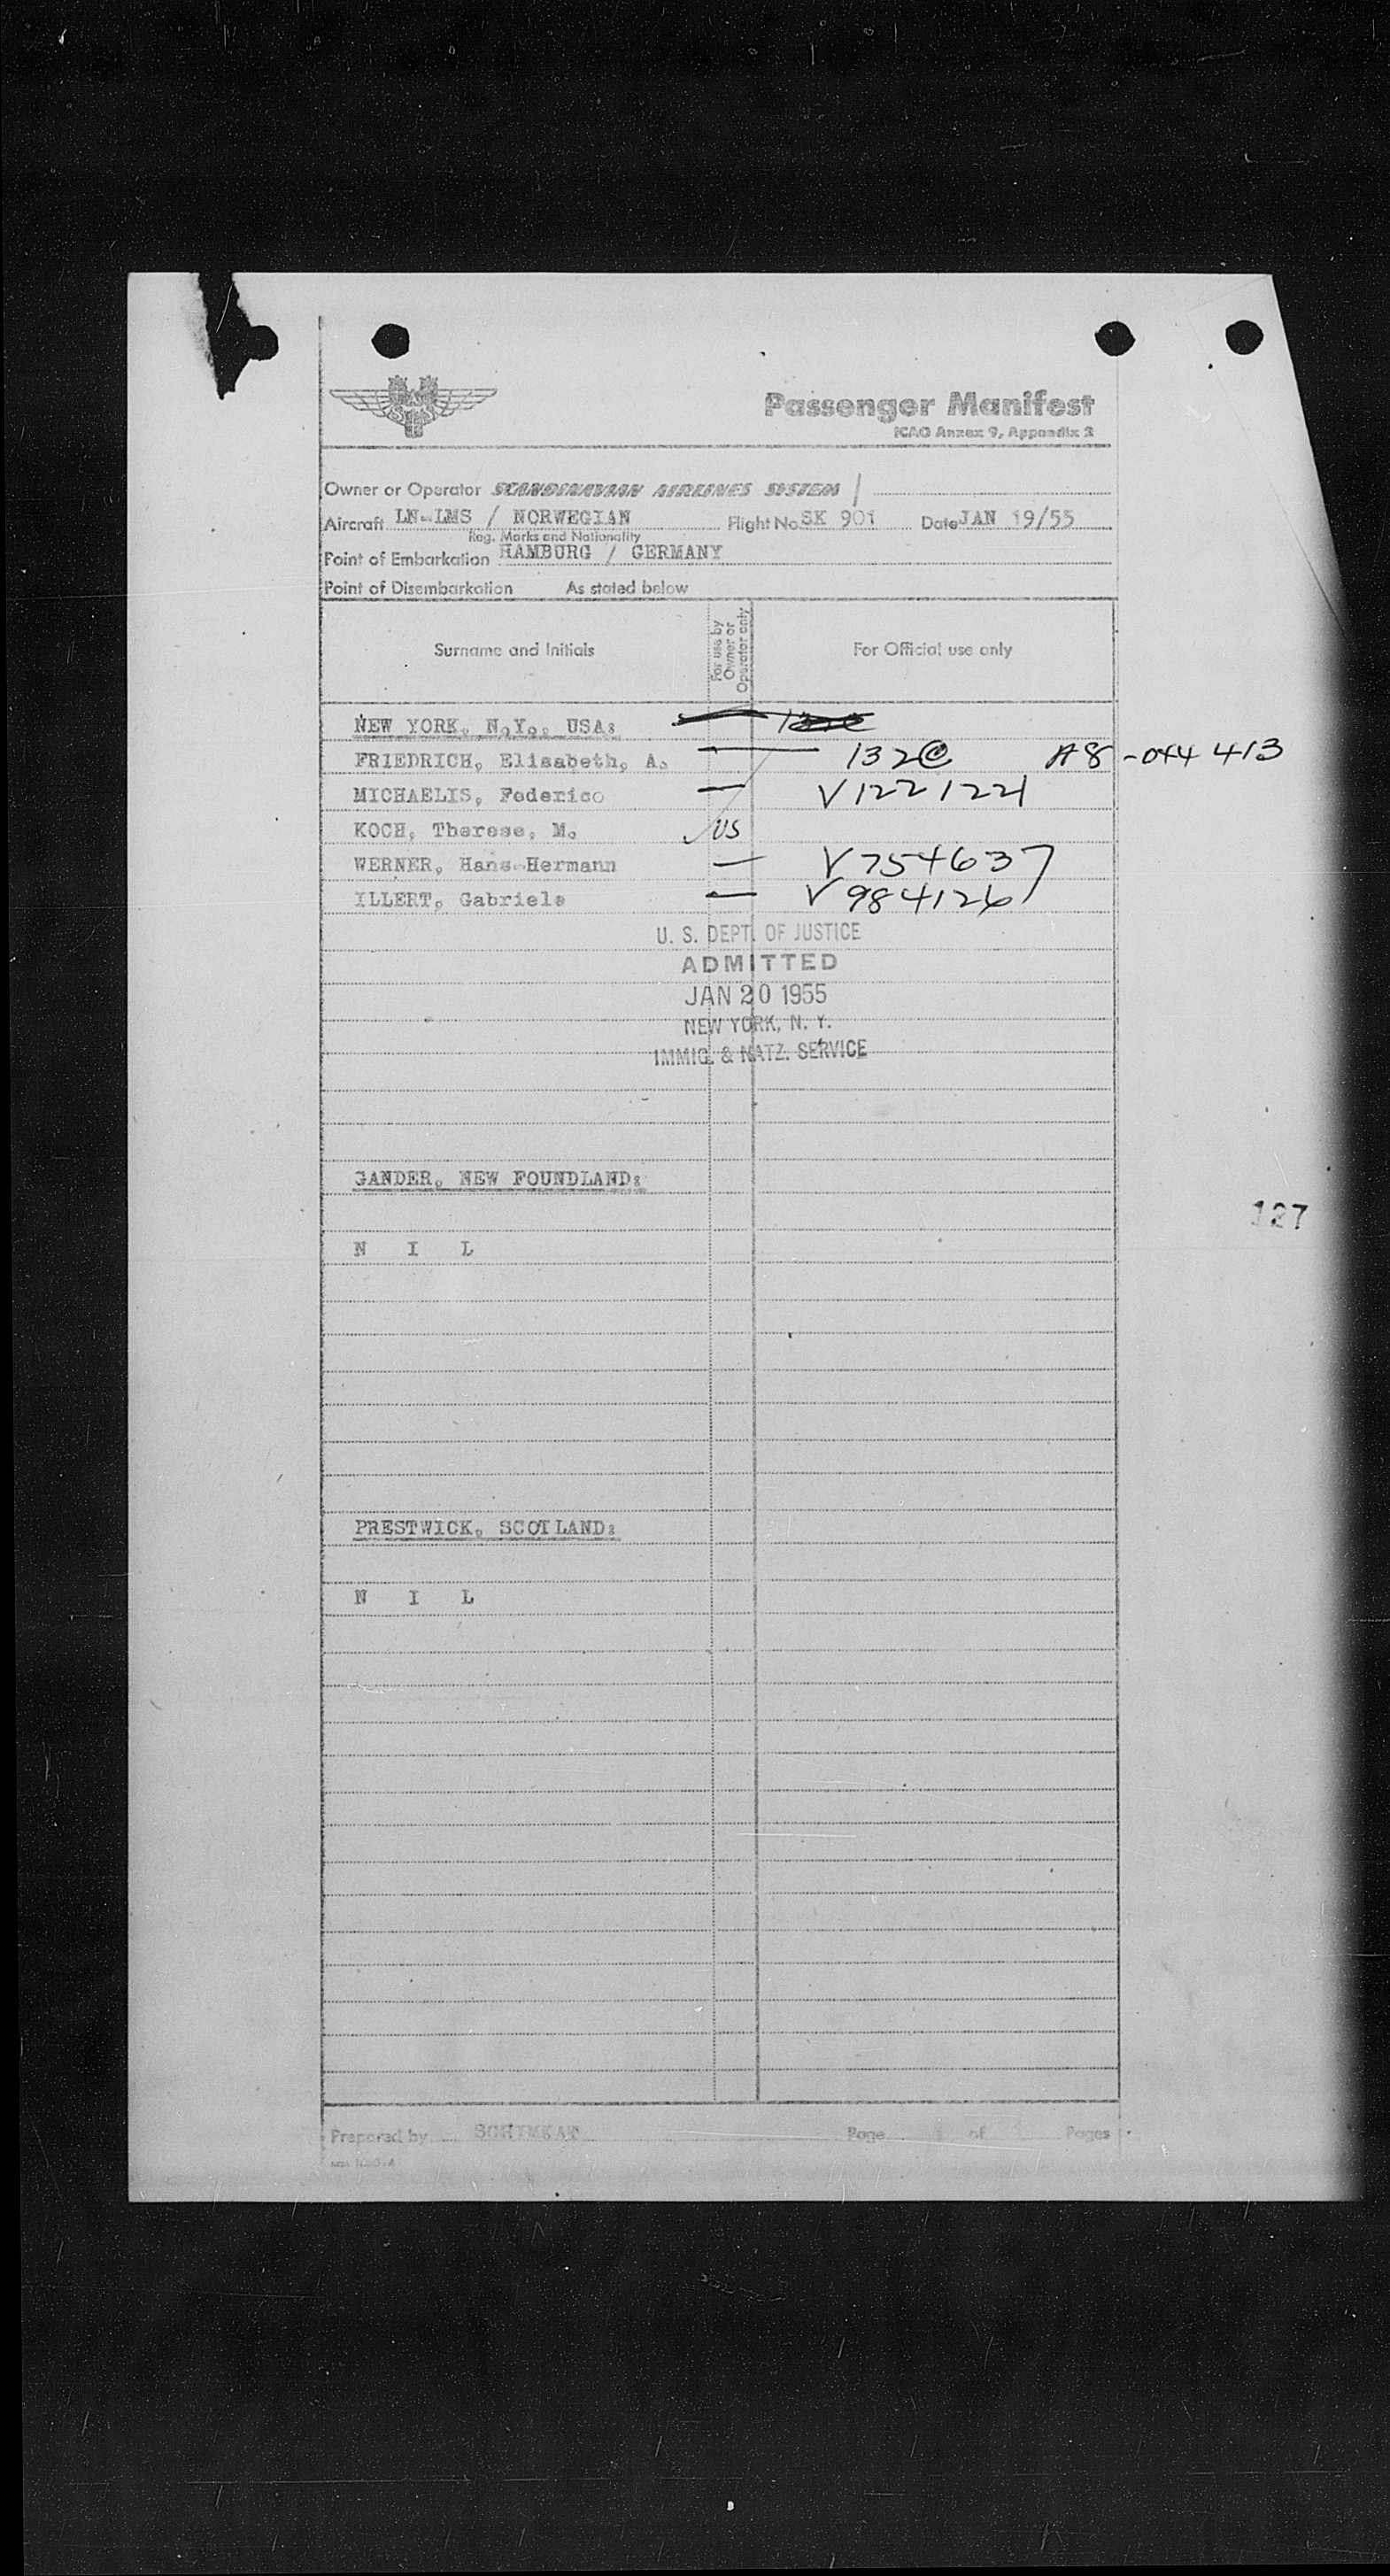 SAS
Passenger Manifest
ICAO Annex 9, Appendix 2
Owner or Operator SCANDINAVIAN AIRLINES SYSTEM
Aircraft LN-LMS / NORWEGIAN Flight No SK 901 Date JAN 19/55
Reg. Marks and Nationality
Point of Embarkation HAMBURG / GERMANY
Point of Disembarkation As stated below
Surname and Initials For use by Owner or Operator only For Official use only
NEW YORK, N.Y., USA:
FRIEDRICH, Elisabeth, A. — 132@ A8-044 413
MICHAELIS, Federico — V1221221
KOCH, Therese, M. US
WERNER, Hans-Hermann — V754637
ILLERT, Gabriele — V984126
U. S. DEPT. OF JUSTICE
ADMITTED
JAN 20 1955
NEW YORK, N. Y.
IMMIG. & NATZ. SERVICE
GANDER, NEW FOUNDLAND:
127
N I L
PRESTWICK, SCOTLAND:
N I L
Prepared by SCHIMKAT Page of Pages